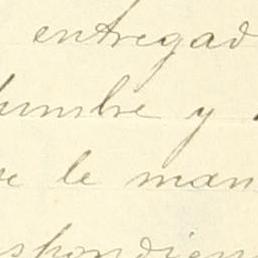 entregad
umbre y
e le man
spondien